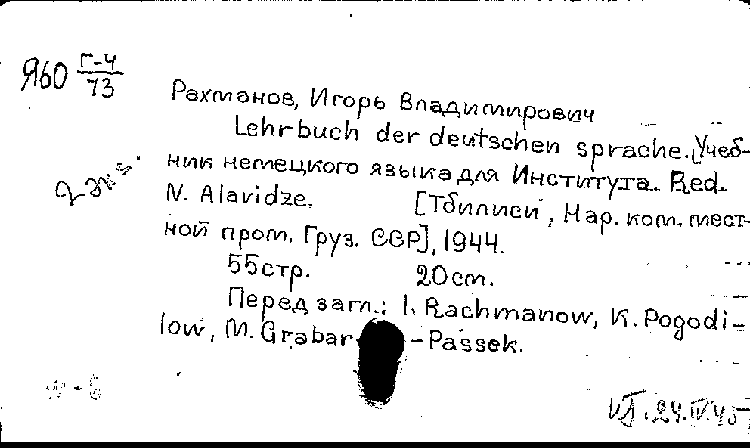 Я60 Г-4/73
Рахманов, Игорь Владимирович
Lehrbuch der deutschen sprache. [Учеб-
ник немецкого языка для Института. Red.
N. Alavidze. [Тбилиси, Нар. ком. мест-
ной пром. Груз. ССР], 1944.
2 экз.
55 стр. 20 cm.
Перед загл.: I. Rachmanow, K. Pogodi-
low, M. Grabar- -Passek.
24.IV.45